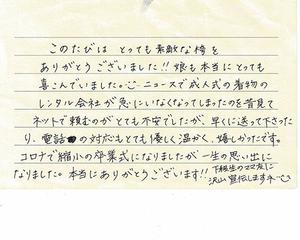 このたびは とっても素敵な袴を
ありがとうございました!! 娘も本当にとっても
喜こんでいました。ニュースで成人式の着物の
レンタル会社が急にいなくなってしまったのを昔見て
ネットで頼むのがとても不安でしたが、早くに送って下さった
り、電話の対応もとても優しく温かく、嬉しかったです。
コロナで縮小の卒業式になりましたが一生の思い出に
なりました。本当にありがとうございます!!
下級生のママ友に
沢山宣伝します